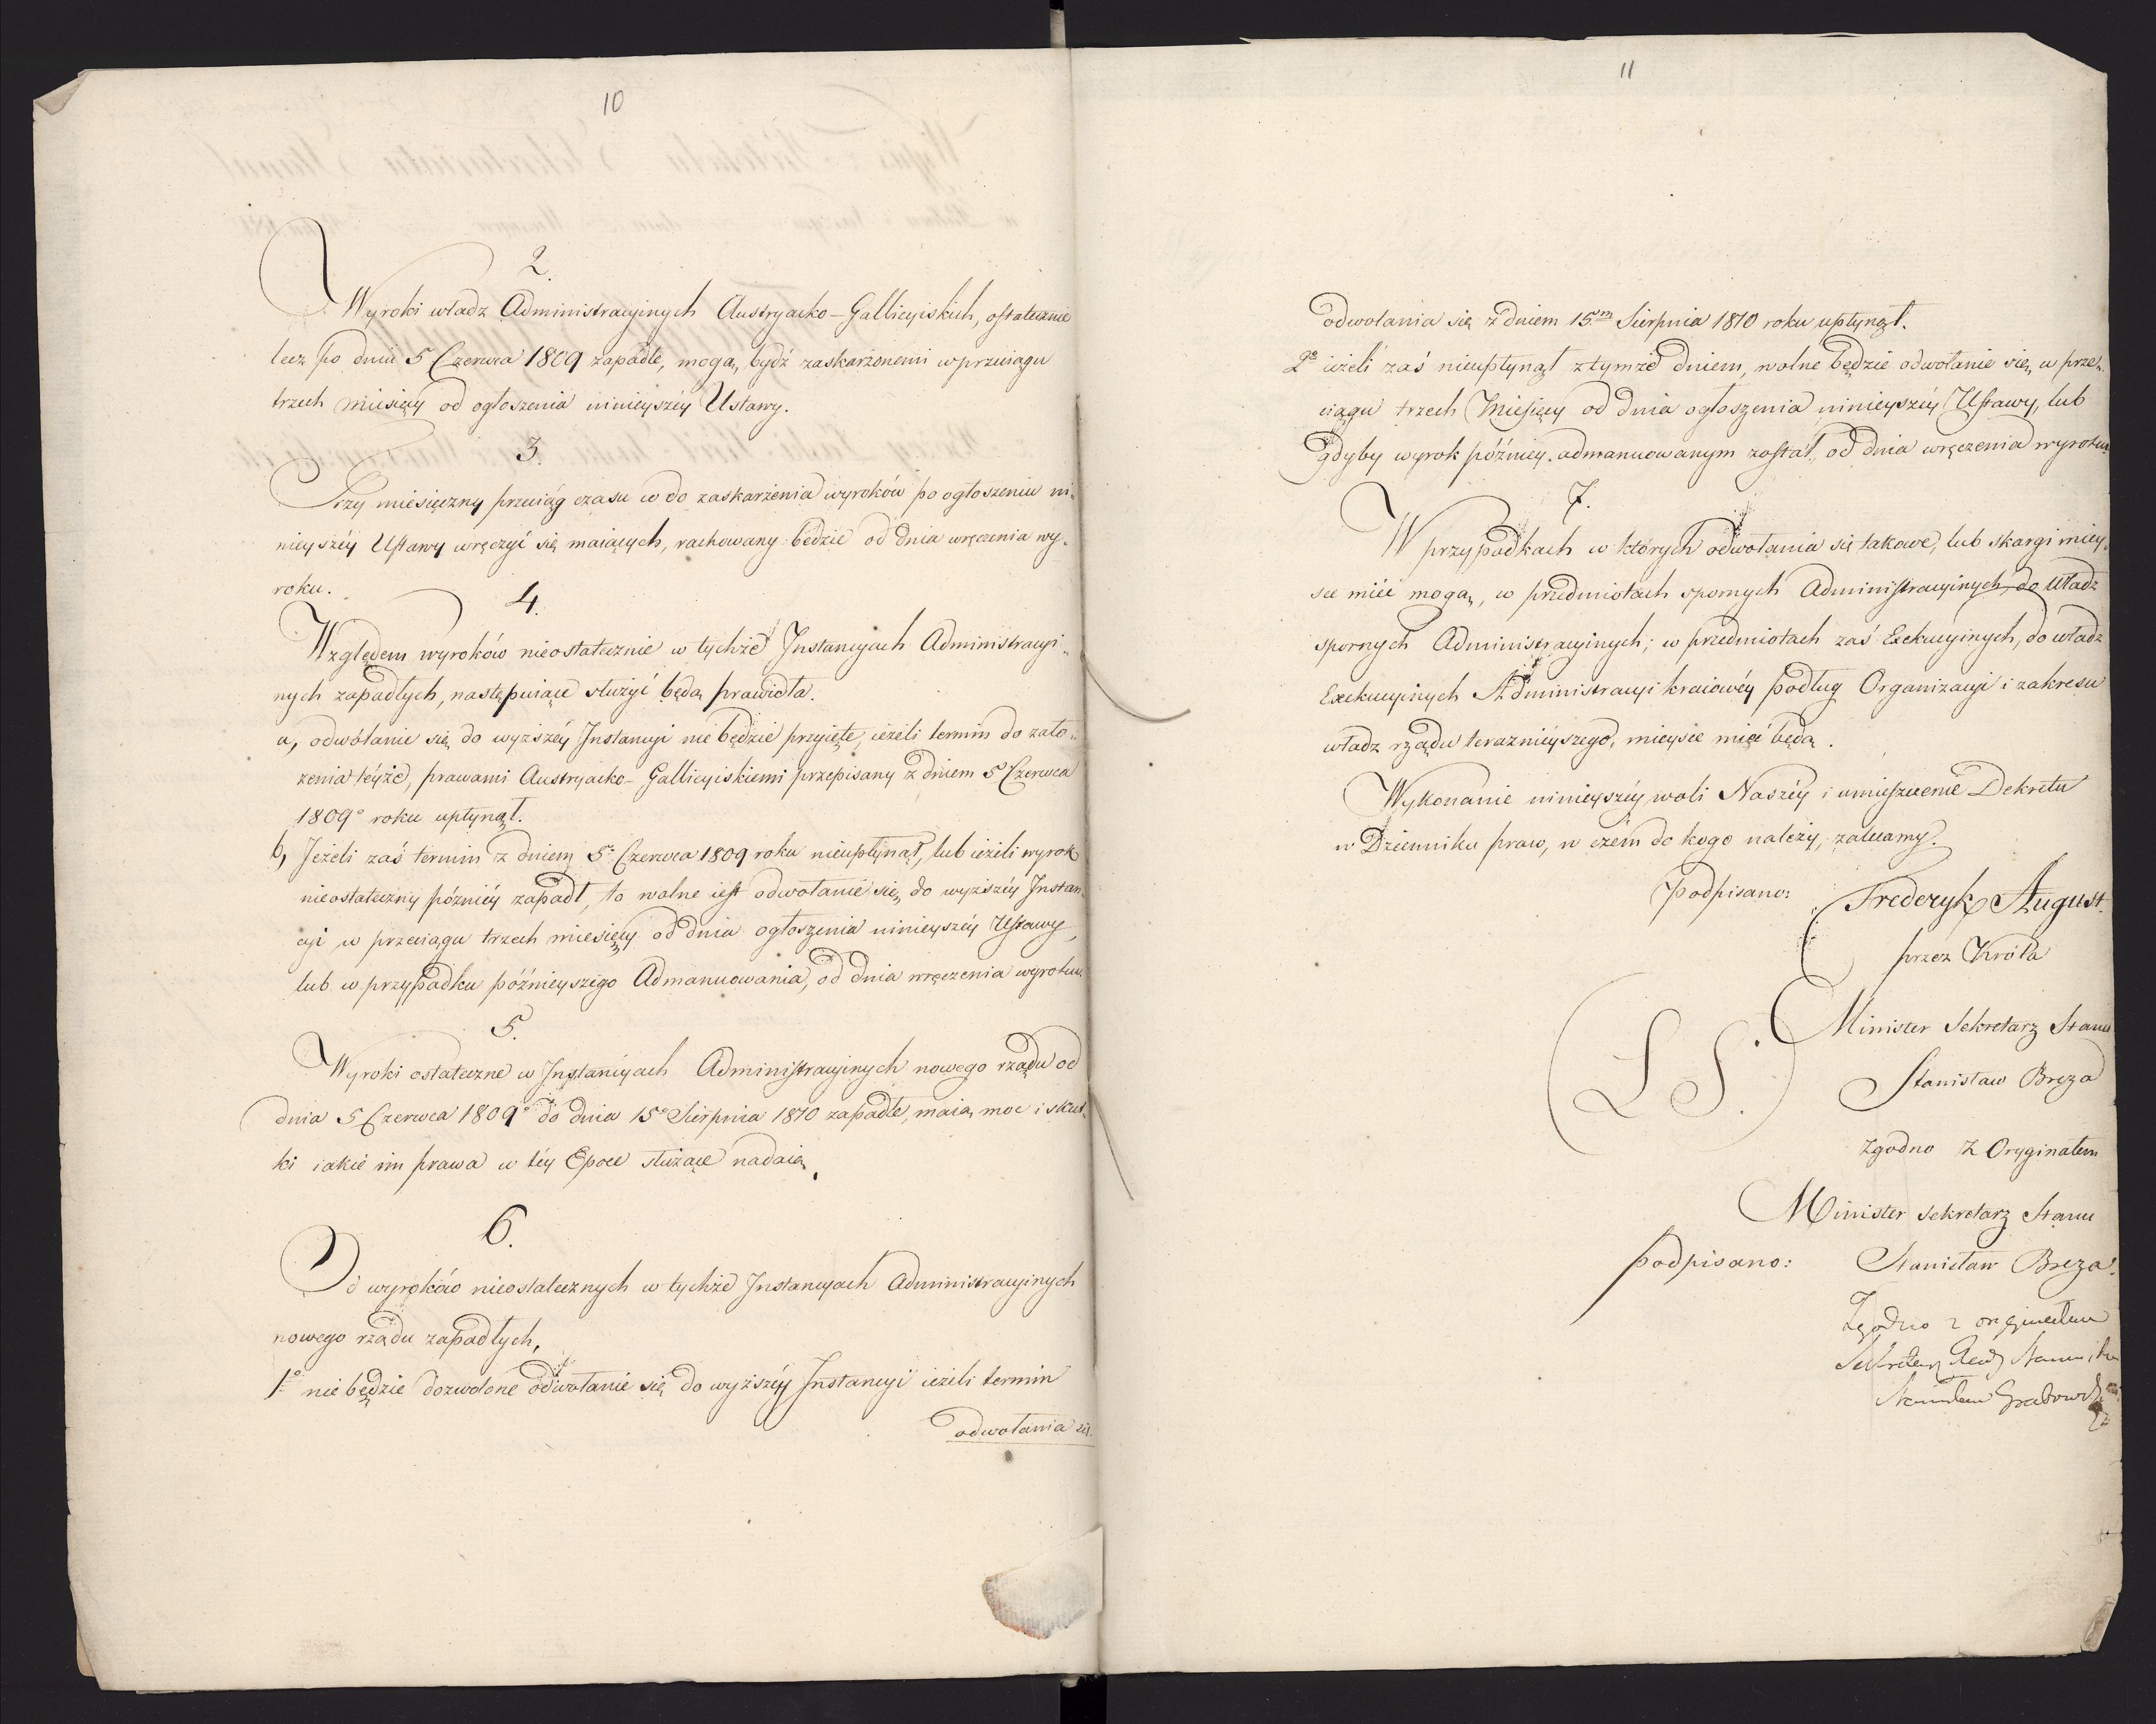 10
2.
Wyroki władz Administracyinych Austryacko-Gallicyiskich, ostatecznie
lecz po dniu 5 Czerwca 1809 zapadłe, mogą bydź zaskarżonemi w przeciągu
trzech miesięcy od ogłoszenia ninieyszéy Ustawy.
3.
Trzy miesięczny przeciąg czasu w do zaskarżenia wyroków po ogłoszeniu ni„
nieyszéy Ustawy wręczyć się maiących, rachowany będzie od dnia wręczenia wy„
roku.
4.
Względem wyroków nieostatecznie w tychże Instancyach Administracyi„
nych zapadłych, następuiące służyć będą prawidła.
a, odwołanie się do wyższéy Instancyi nie będzie przyięte, ieżeli termin do zało„
żenia téyże, prawami Austryacko-Gallicyiskiemi przepisany z dniem 5 Czerwca
1809o roku upłynął.
b, Jeżeli zaś termin z dniem 5o Czerwca 1809 roku nieupłynął, lub ieżeli wyrok
nieostateczny późniéy zapadł, to wolne iest odwołanie się do wyższéy Instan„
cyi w przeciągu trzech miesięcy od dnia ogłoszenia ninieyszéy Ustawy,
lub w przypadku późnieyszego Admanuowania, od dnia wręczenia wyroku.
5.
Wyroki ostateczne w Instancyach Administracyinych nowego rządu od
dnia 5 Czerwca 1809o do dnia 15o Sierpnia 1810 zapadłe, maią moc i skut„
ki iakie im prawa w téy Epoce służące nadaią.
6.
Od wyroków nieostatecznych w tychże Instancyach Administracyinych
nowego rządu zapadłych,
1o nie będzie dozwolone odwołanie się do wyższéy Instancyi ieżeli termin
odwołania się.
11
odwołania się z dniem 15m Sierpnia 1810 roku upłynął.
2o ieżeli zaś nieupłynął z tymże dniem, wolne będzie odwołanie się w prze„
ciągu trzech Miesięcy od dnia ogłoszenia ninieyszéy Ustawy, lub
gdyby wyrok późniey admanuowanym został, od dnia wręczenia wyroku.
7.
W przypadkach w których odwołania się takowe, lub skargi miey„
sce mieć mogą, w przedmiotach spornych Administracyinych do władz
spornych Administracyinych; w przedmiotach zaś Exekucyinych, do władz
Exekucyinych Administracyi kraiowéy podług Organizacyi i zakresu
władz rządu teraznieyszego, mieysce mieć będą.
Wykonanie ninieyszéy woli Naszéy i umieszczenie Dekretu
w Dzienniku praw, w czém do kogo należy, zalecamy.
Podpisano: Frederyk August.
przez Króla
Minister Sekretarz Stanu
L S.
Stanisław Breza
Zgodno z Oryginałem
Minister Sekretarz Stanu
podpisano: Stanisław Breza.
Zgodno z oryginałem
Sekretarz Rady Stanu
Stanisław Grabowski